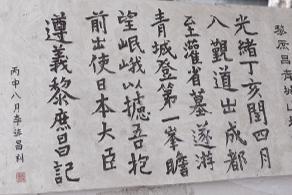 黎庶昌青城山
光緒丁亥閏四月
入觀道出成都
至灌省墓遂游
青城登第一峯瞻
望岷峨以攄吾抱
前出使日本大臣
遵義黎庶昌記
丙申八月李
昌刻